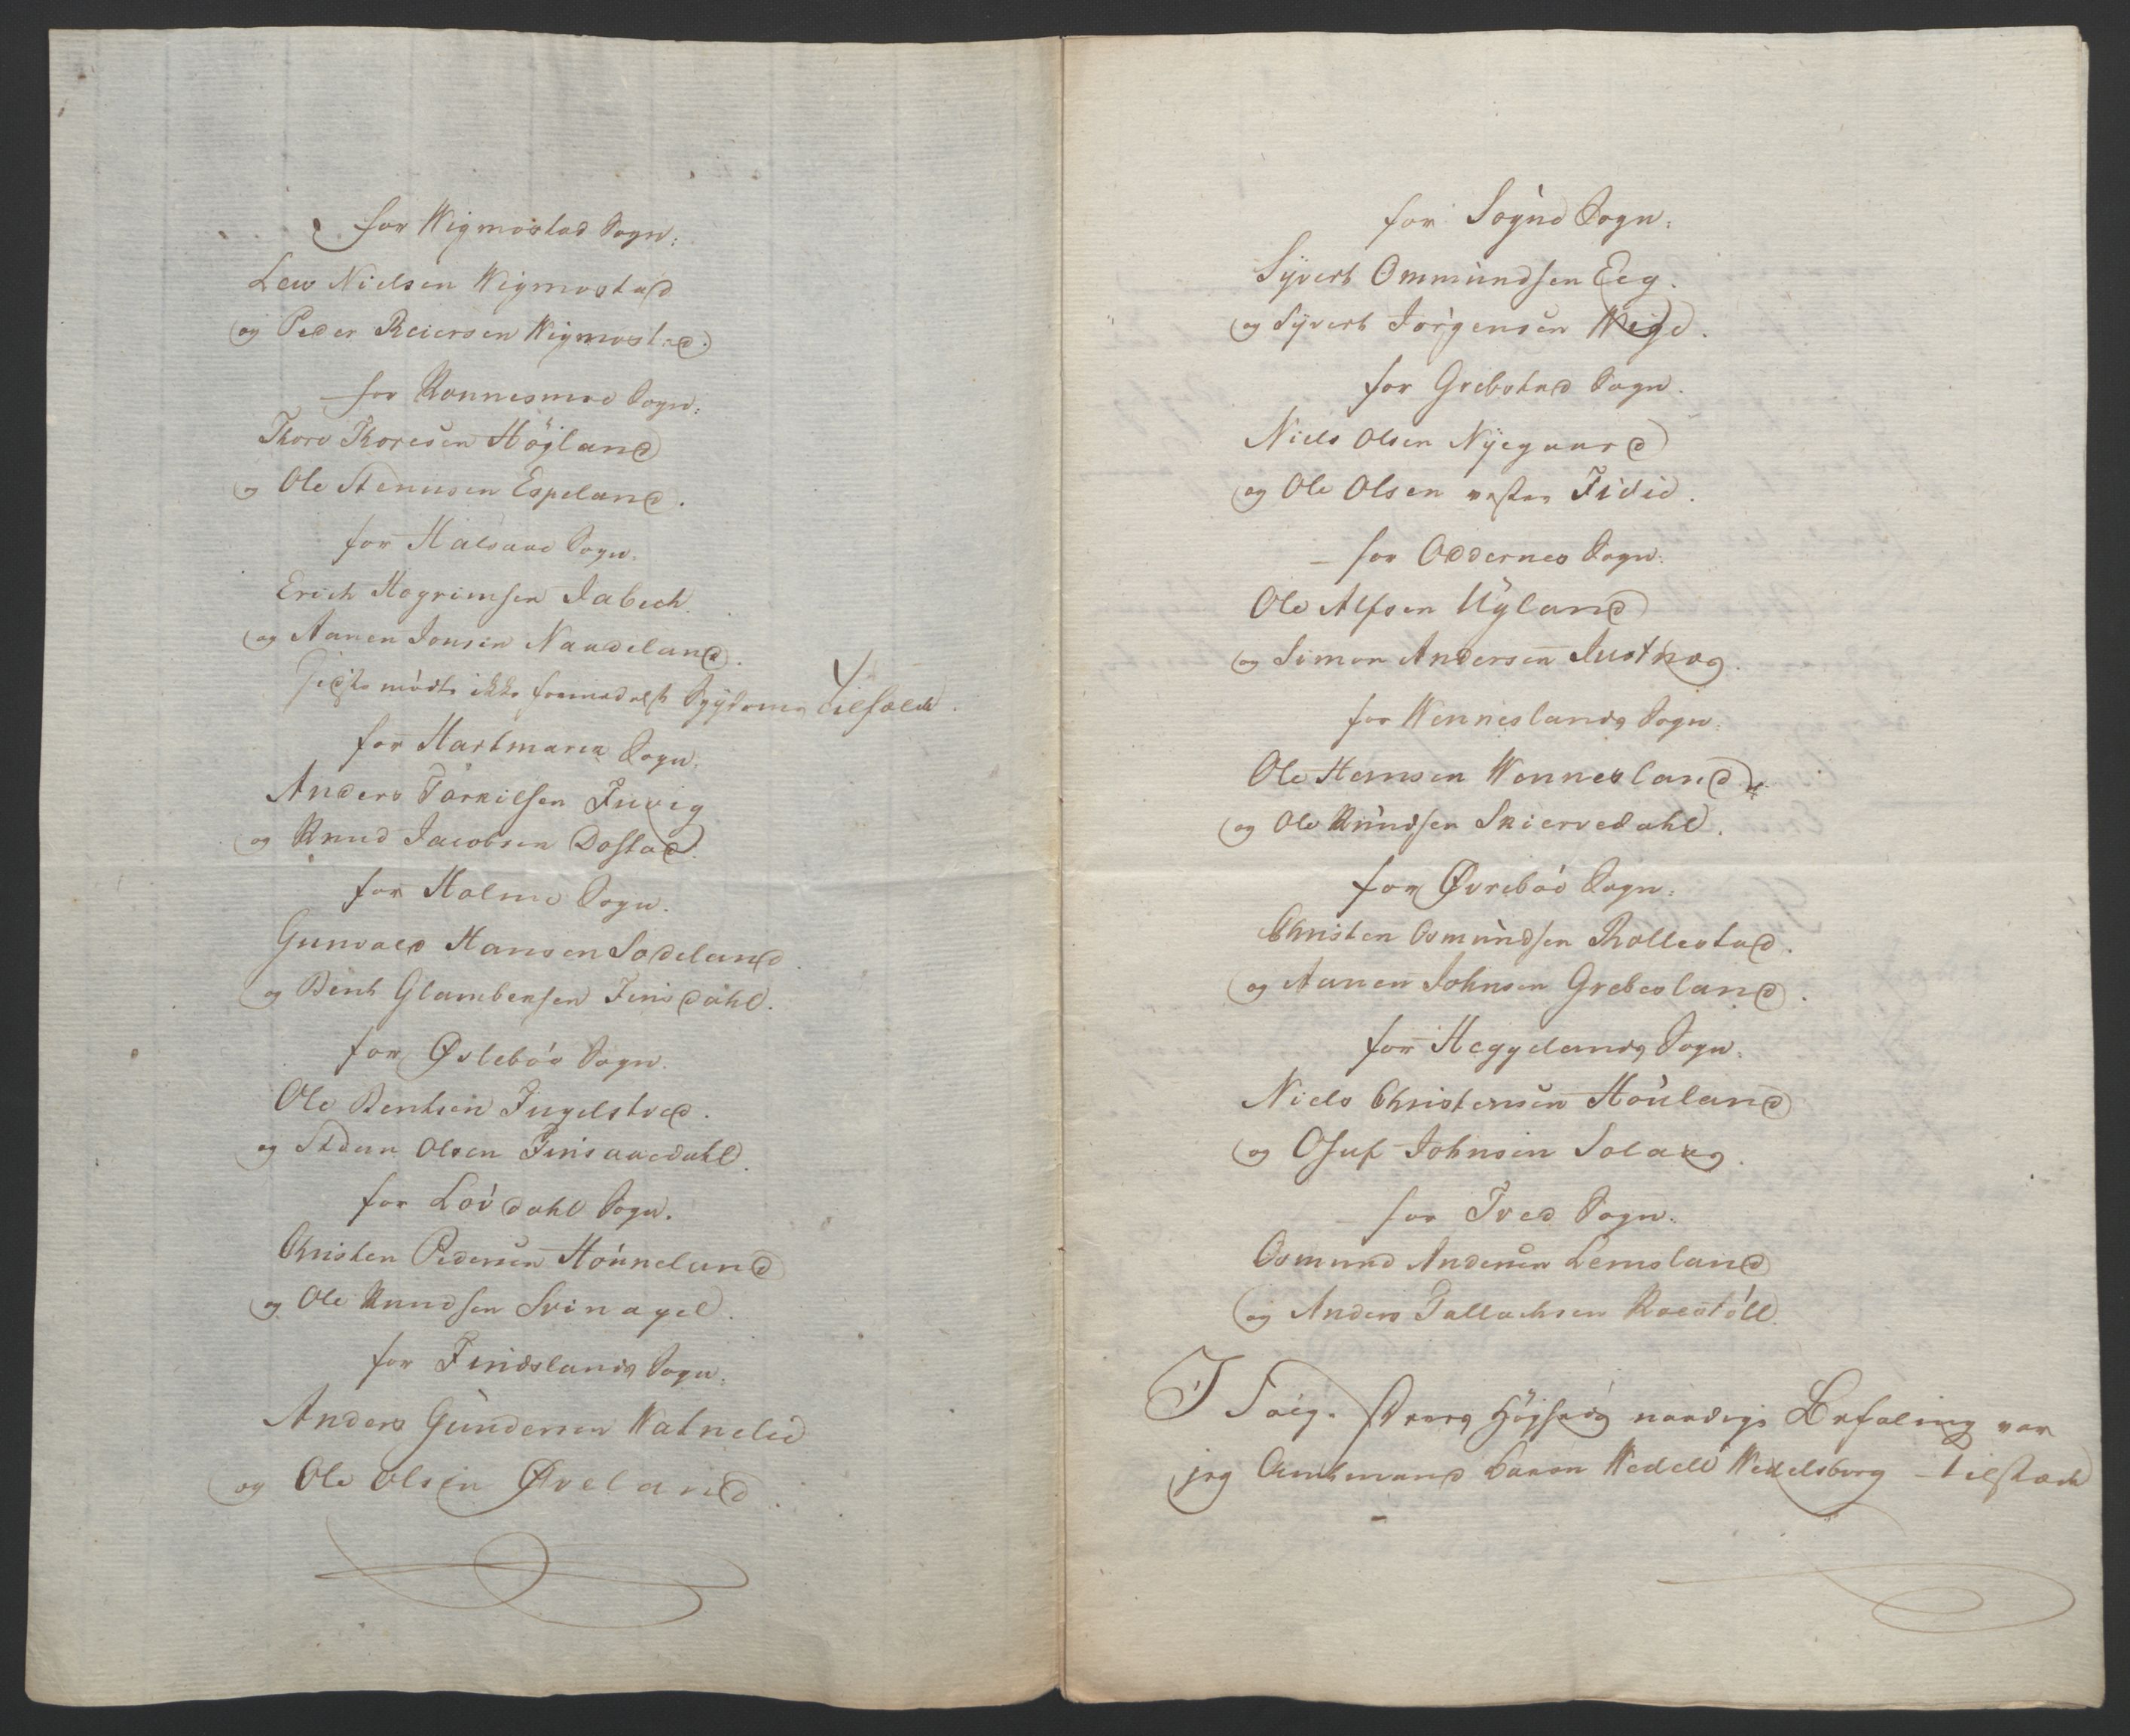 for Wigmostad Sogn:
Lew Nielsen Wigmostad
og Peder Reiersen Wigmostad.
for Konnesmoe Sogn:
Thore Thoresen Högland
og Ole Stensen Espeland.
for Halsaae Sogn.
Erich Hogrimsen Jabech.
og Aanen Jonsen Naadeland.
sidste mødte ikke formedelst Sygdoms tilfælde.
for Hartmarch Sogn.
Anders Torkilsen Fuvig
og Knud Jacobsen Dåstad.
for Holme Sogn.
Gunvald Hansen Sodeland.
og Bent Glambeksen Finsdahl.
for Øslebøe Sogn.
Ole Bentsen Ingelstved.
og Steen Olsen Finsaaedahl.
for Løvdahl Sogn.
Christen Pedersen Hønneland
og Ole Knudsen Svinagel.
for Findslands Sogn.
Anders Gundersen Watnelie
og Ole Olsen Øveland.
for Søgne Sogn.
Syvert Ommundsen Eeg.
og Syvert Jørgensen Wige.
for Grebstad Sogn.
Niels Olsen Nyegaard
og Ole Olsen vestre Fidie.
for Oddernes Sogn.
Ole Alfsen Ugland
og Simon Andersen Justnæs.
for Wenneslands Sogn.
Ole Hansen Wennesland
og Ole Knudsen Skiervedahl.
for Øvrebøe Sogn.
Christen Osmundsen Rollestad.
og Aanen Johnsen Grebesland.
for Hægelands Sogn.
Niels Christensen Høuland
og Osuf Johnsen Solaas.
for Tved Sogn.
Osmund Andersen Lemsland
og Anders Tallachsen Kaastöll.
I Følg. Deres Højheds naadige Befaling var
jeg Amtmand Baron Wedell Wedelsborg tilstæde